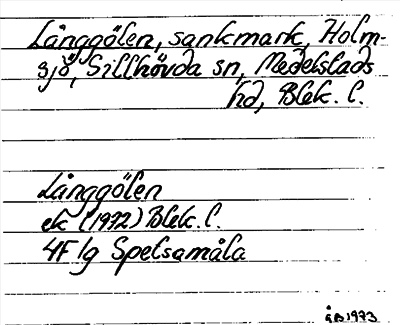 Långgölen, sankmark, Holm-
sjö, Sillhövda sn, Medelstads
hd, Blek. l.
Långgölen
ek (1972) Blek. l.
4F 1g Spetsamåla
ÅB 1973